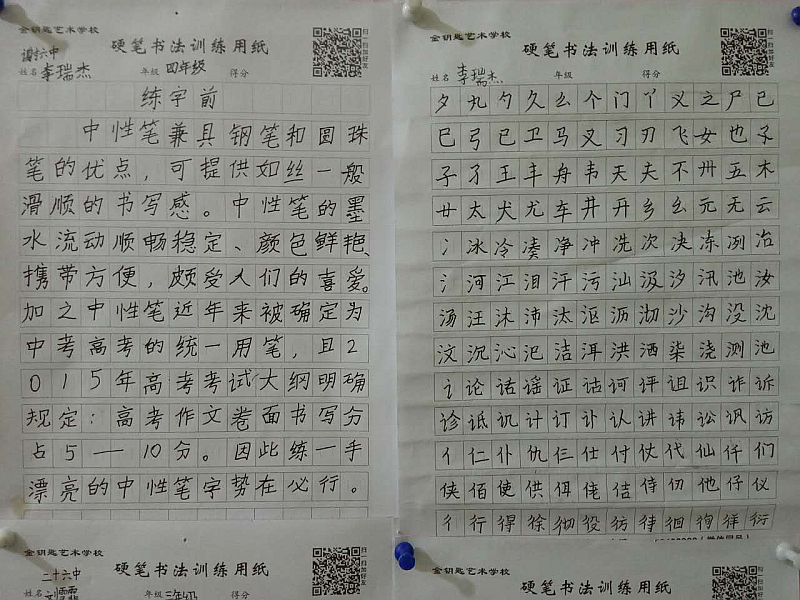 金钥匙艺术学校
硬笔书法训练用纸
扫一扫加好友
六中
姓名 李瑞杰 年级 四年级 得分
练字前
中性笔兼具钢笔和圆珠
笔的优点，可提供如丝一般
滑顺的书写感。中性笔的墨
水流动顺畅稳定、颜色鲜艳、
携带方便，颇受人们的喜爱。
加之中性笔近年来被确定为
中考高考的统一用笔，且2
015年高考考试大纲明确
规定：高考作文卷面书写分
占5—10分。因此练一手
漂亮的中性笔字势在必行。
金钥匙艺术学校
硬笔书法训练用纸
扫一扫加好友
姓名 李瑞杰 年级 得分
夕九勺久么个门丫义之尸已
巳弓已卫马叉习刃飞女也子
子孑王丰舟韦天夫不卅五木
廿太犬尤车井开乡幺元无云
冫冰冷凑净冲洗次决冻冽冶
氵河江泪汗污汕汲汐汛池汝
汤汪沐沛汰沤沥沏沙沟没沈
汶沉沁汜洁洱洪洒柒浇测池
讠论诸谣证诂诃评诅识诈诉
诊诋讥计订讣认讲讳讼讽访
亻仁仆仇仨仕付仗代仙仟们
侠佰使供佴佬佶侍仞他仔仪
彳行得徐彻役彷待徊徇徉衍
金钥匙艺术学校
硬笔书法训练用纸
扫一扫加好友
二十六中
姓名 年级 三年级 得分
金钥匙艺术学校
硬笔书法训练用纸